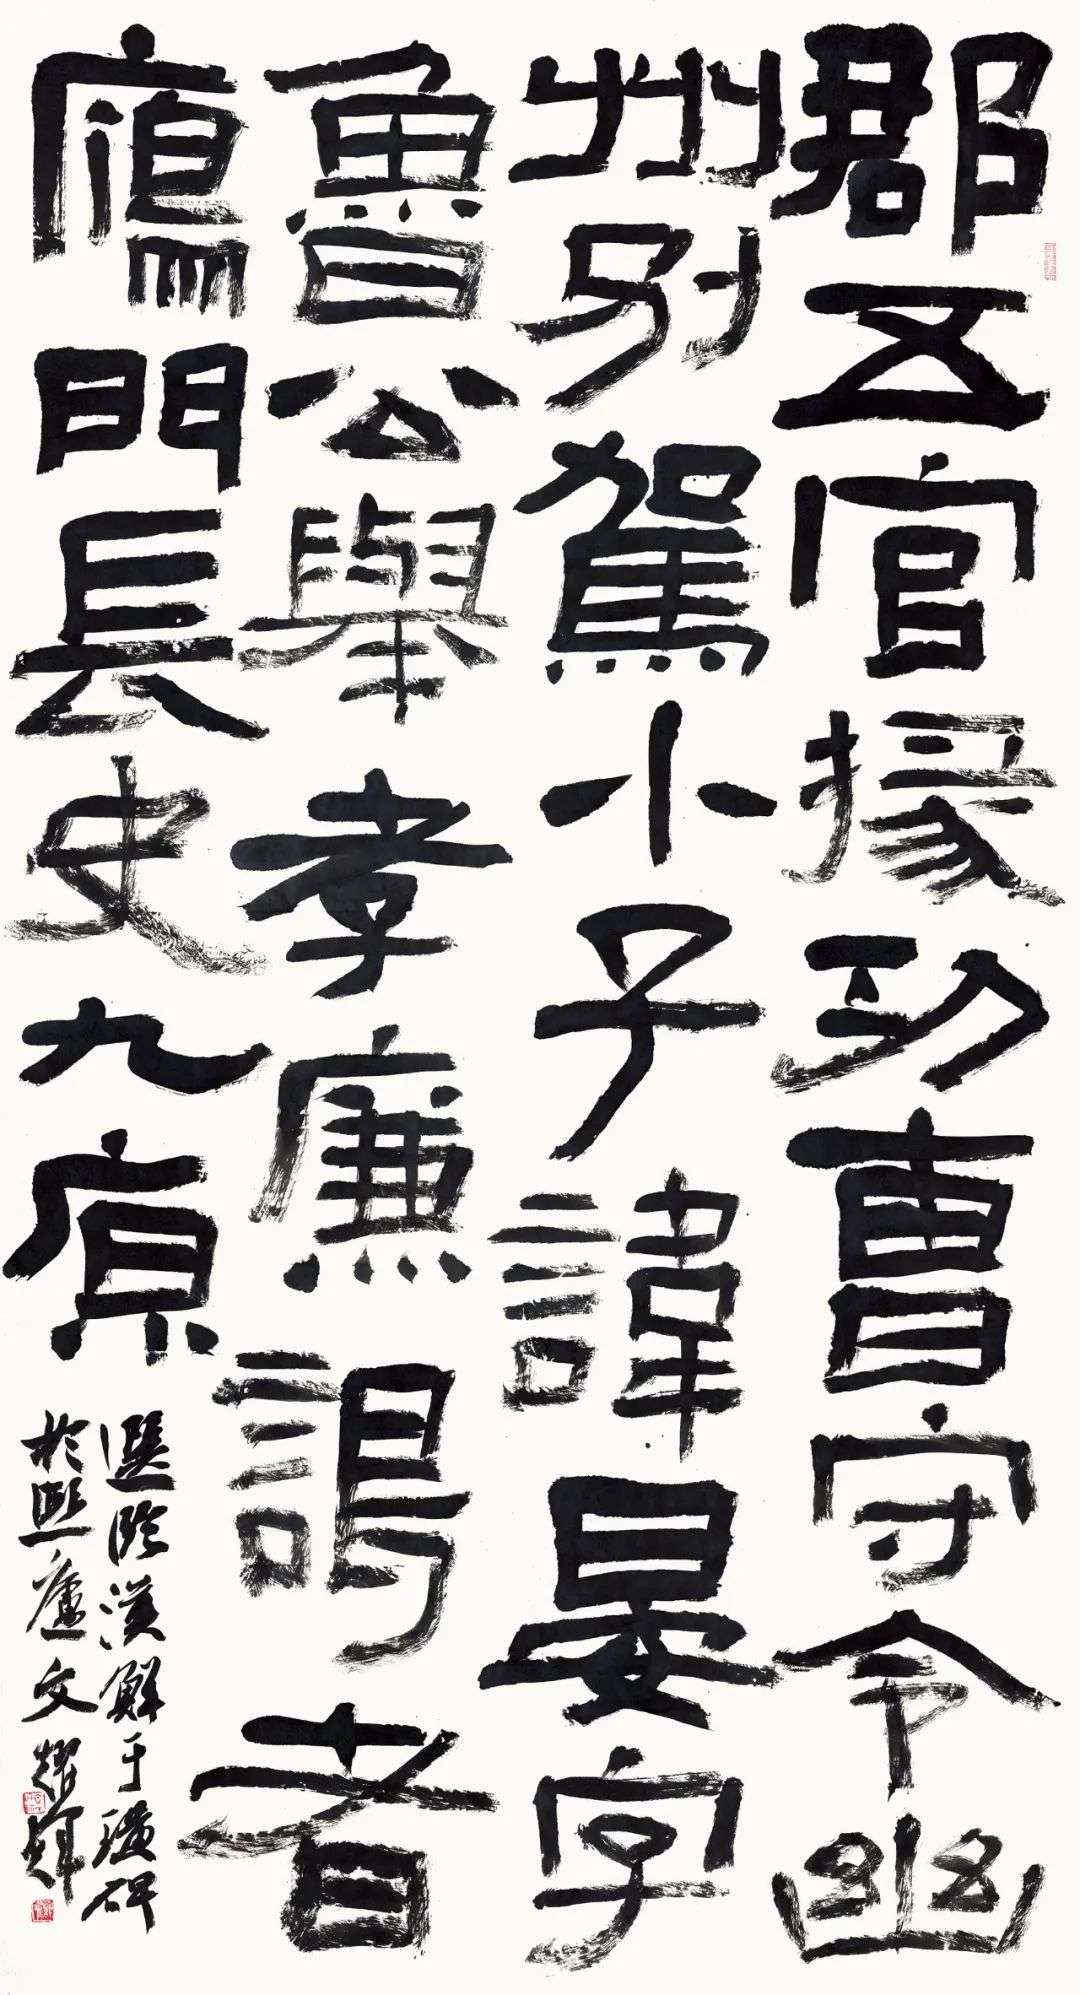 郡五官掾功曹守令幽
州別駕小子諱晏字
魯公舉孝廉謁者
鴈門長史九原
選臨漢鮮于璜碑
於熙廬文耀輝